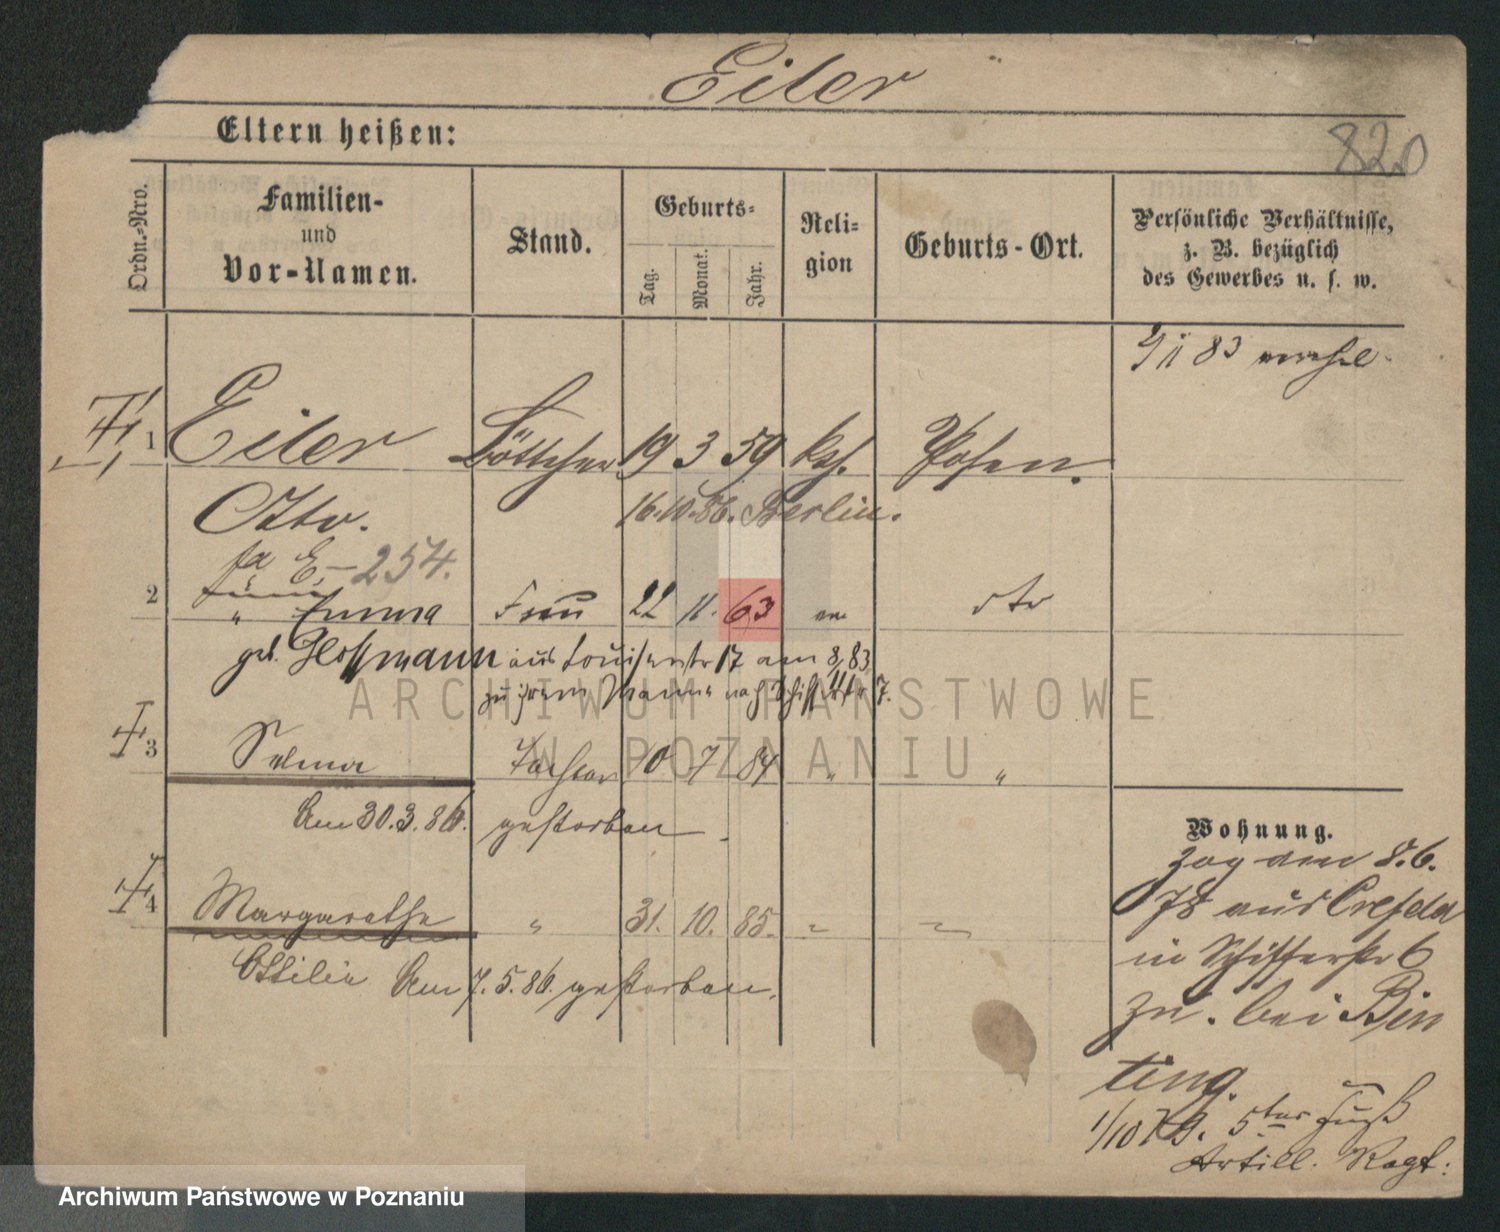 Eiler
820
Eltern heißen:
Ordn.-Nro.
Familien-
und
Vor-Namen.
Stand.
Geburts-
Tag.
Monat.
Jahr.
Reli-
gion
Geburts-Ort.
Persönliche Verhältnisse,
z. B. bezüglich
des Gewerbes u. s. w.
83
1 Eiler Böttcher 19 3 59 kath. Posen.
Otto. 16.10.86. Berlin.
E-254.
2 " Emma Frau 22 11. 63 do
geb. Hoffmann aus Louisenstr 17 am 8/11 83
zu ihrem Manne nach Schifferstr 7.
ARCHIWUM PAŃSTWOWE
W POZNANIU
3 Selma Tochter 10 7 84 " "
Am 30.3.86. gestorben
4 Margarethe " 31. 10. 85. " "
Ottilie Am 7.5.86. gestorben.
Wohnung.
Zog am 8.6.
78 aus Crefeld
in Schifferstr 6
zu. bei Bin
ting.
1/10 79. 5ter Fuß
Artill. Regt.
Archiwum Państwowe w Poznaniu